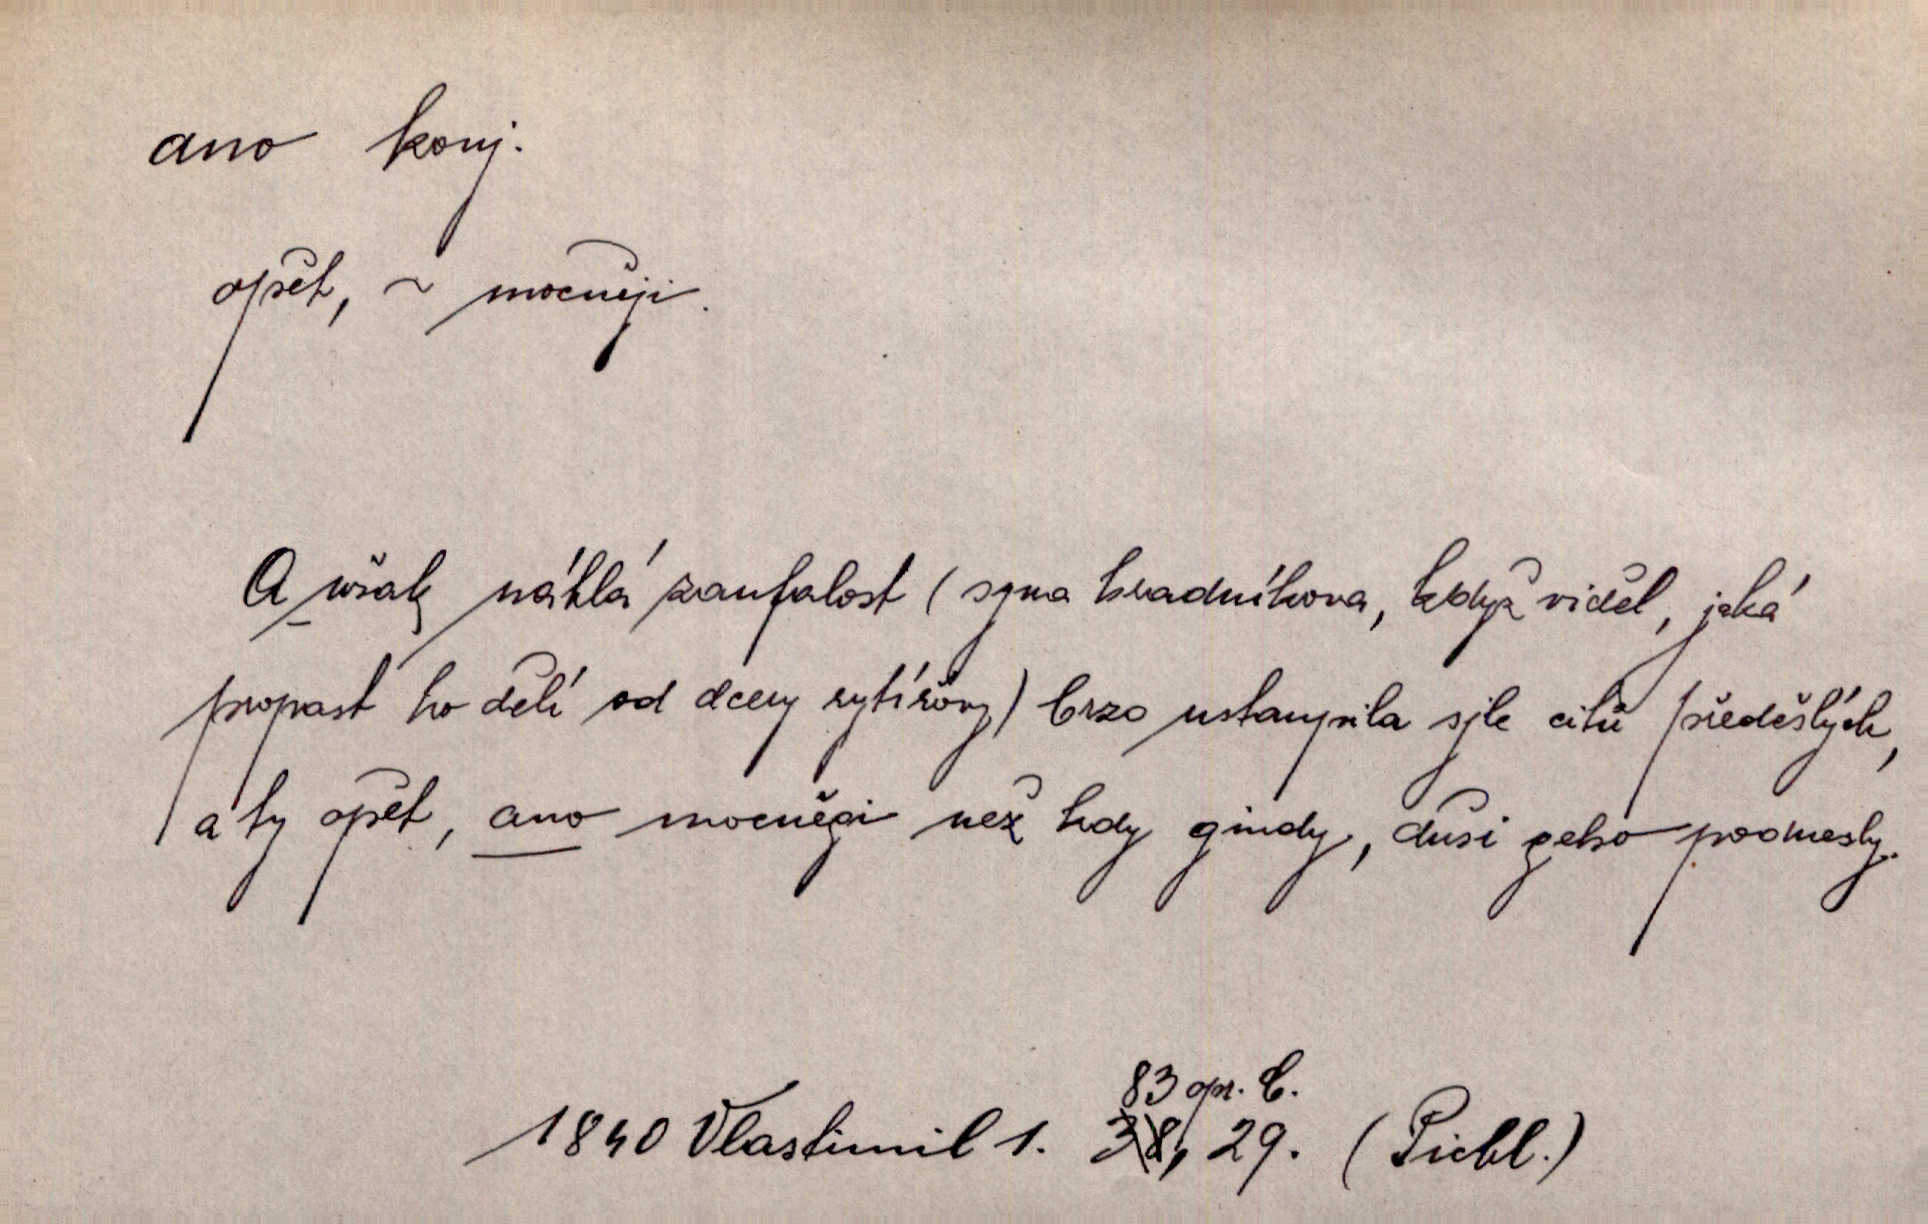 ano konj.
opět, ~ mocněji.
A wšak náhlá zaufalost (syna hradníkova, když viděl, jaká
propast ho dělí od dcery rytířovy) brzo ustaupila sjle citů předešlých,
a ty opět, ano mocněgi než kdy gindy, duši geho podnesly.
83 opr. C.
1840 Vlastimil 1. 38, 29. (Pichl.)